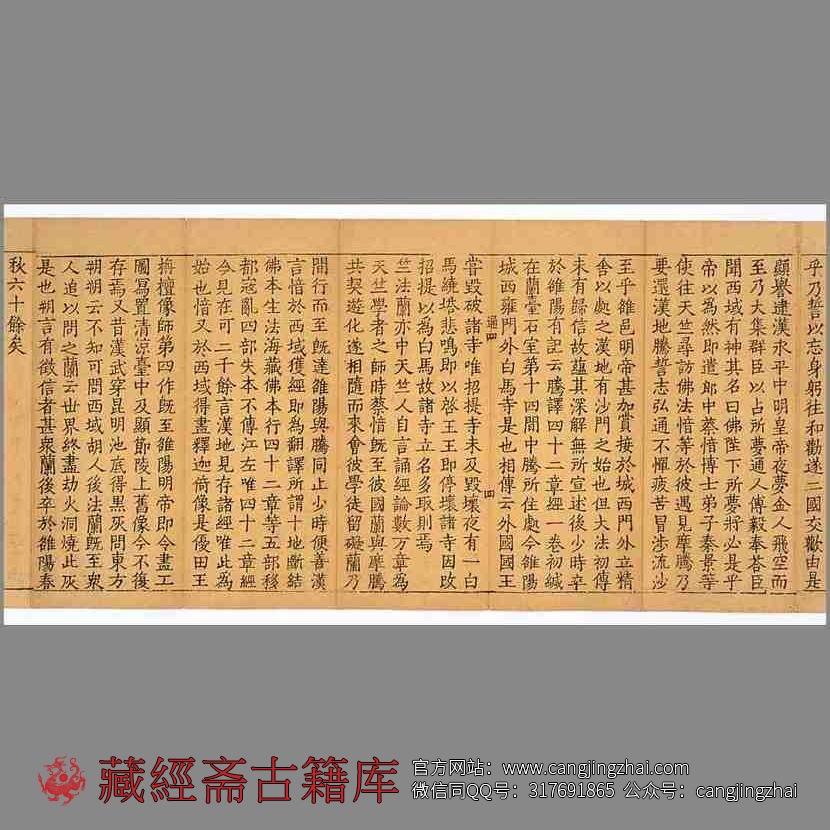 乎乃誓以忘身躬往和勸遂二國交歡由是
顯譽逮漢永平中明皇帝夜夢金人飛空而
至乃大集群臣以占所夢通人傅毅奉荅臣
聞西域有神其名曰佛陛下所夢將必是乎
帝以為然即遣郎中蔡愔博士弟子秦景等
使往天竺尋訪佛法愔等於彼遇見摩騰乃
要還漢地騰誓志弘通不憚疲苦冒涉流沙
至乎雒邑明帝甚加賞接於城西門外立精
舍以處之漢地有沙門之始也但大法初傳
未有歸信故蘊其深解無所宣述後少時卒
於雒陽有記云騰譯四十二章經一卷初緘
在蘭臺石室第十四間中騰所住處今雒陽
城西雍門外白馬寺是也相傳云外國國王
通四
四
嘗毀破諸寺唯招提寺未及毀壞夜有一白
馬繞塔悲鳴即以啓王王即停壞諸寺因改
招提以為白馬故諸寺立名多取則焉
竺法蘭亦中天竺人自言誦經論數万章為
天竺學者之師時蔡愔既至彼國蘭與摩騰
共契遊化遂相隨而來會彼學徒留礙蘭乃
間行而至既達雒陽與騰同止少時便善漢
言愔於西域獲經即為翻譯所謂十地斷結
佛本生法海藏佛本行四十二章等五部移
都寇亂四部失本不傳江左唯四十二章經
今見在可二千餘言漢地見存諸經唯此為
始也愔又於西域得畫釋迦倚像是優田王
栴檀像師第四作既至雒陽明帝即令畫工
圖寫置清涼臺中及顯節陵上舊像今不復
存焉又昔漢武穿昆明池底得黑灰問東方
朔朔云不知可問西域胡人後法蘭既至衆
人追以問之蘭云世界終盡劫火洞燒此灰
是也朔言有徵信者甚衆蘭後卒於雒陽春
秋六十餘矣
藏經斋古籍库
官方网站：www.cangjingzhai.com
微信同QQ号：317691865 公众号：cangjingzhai